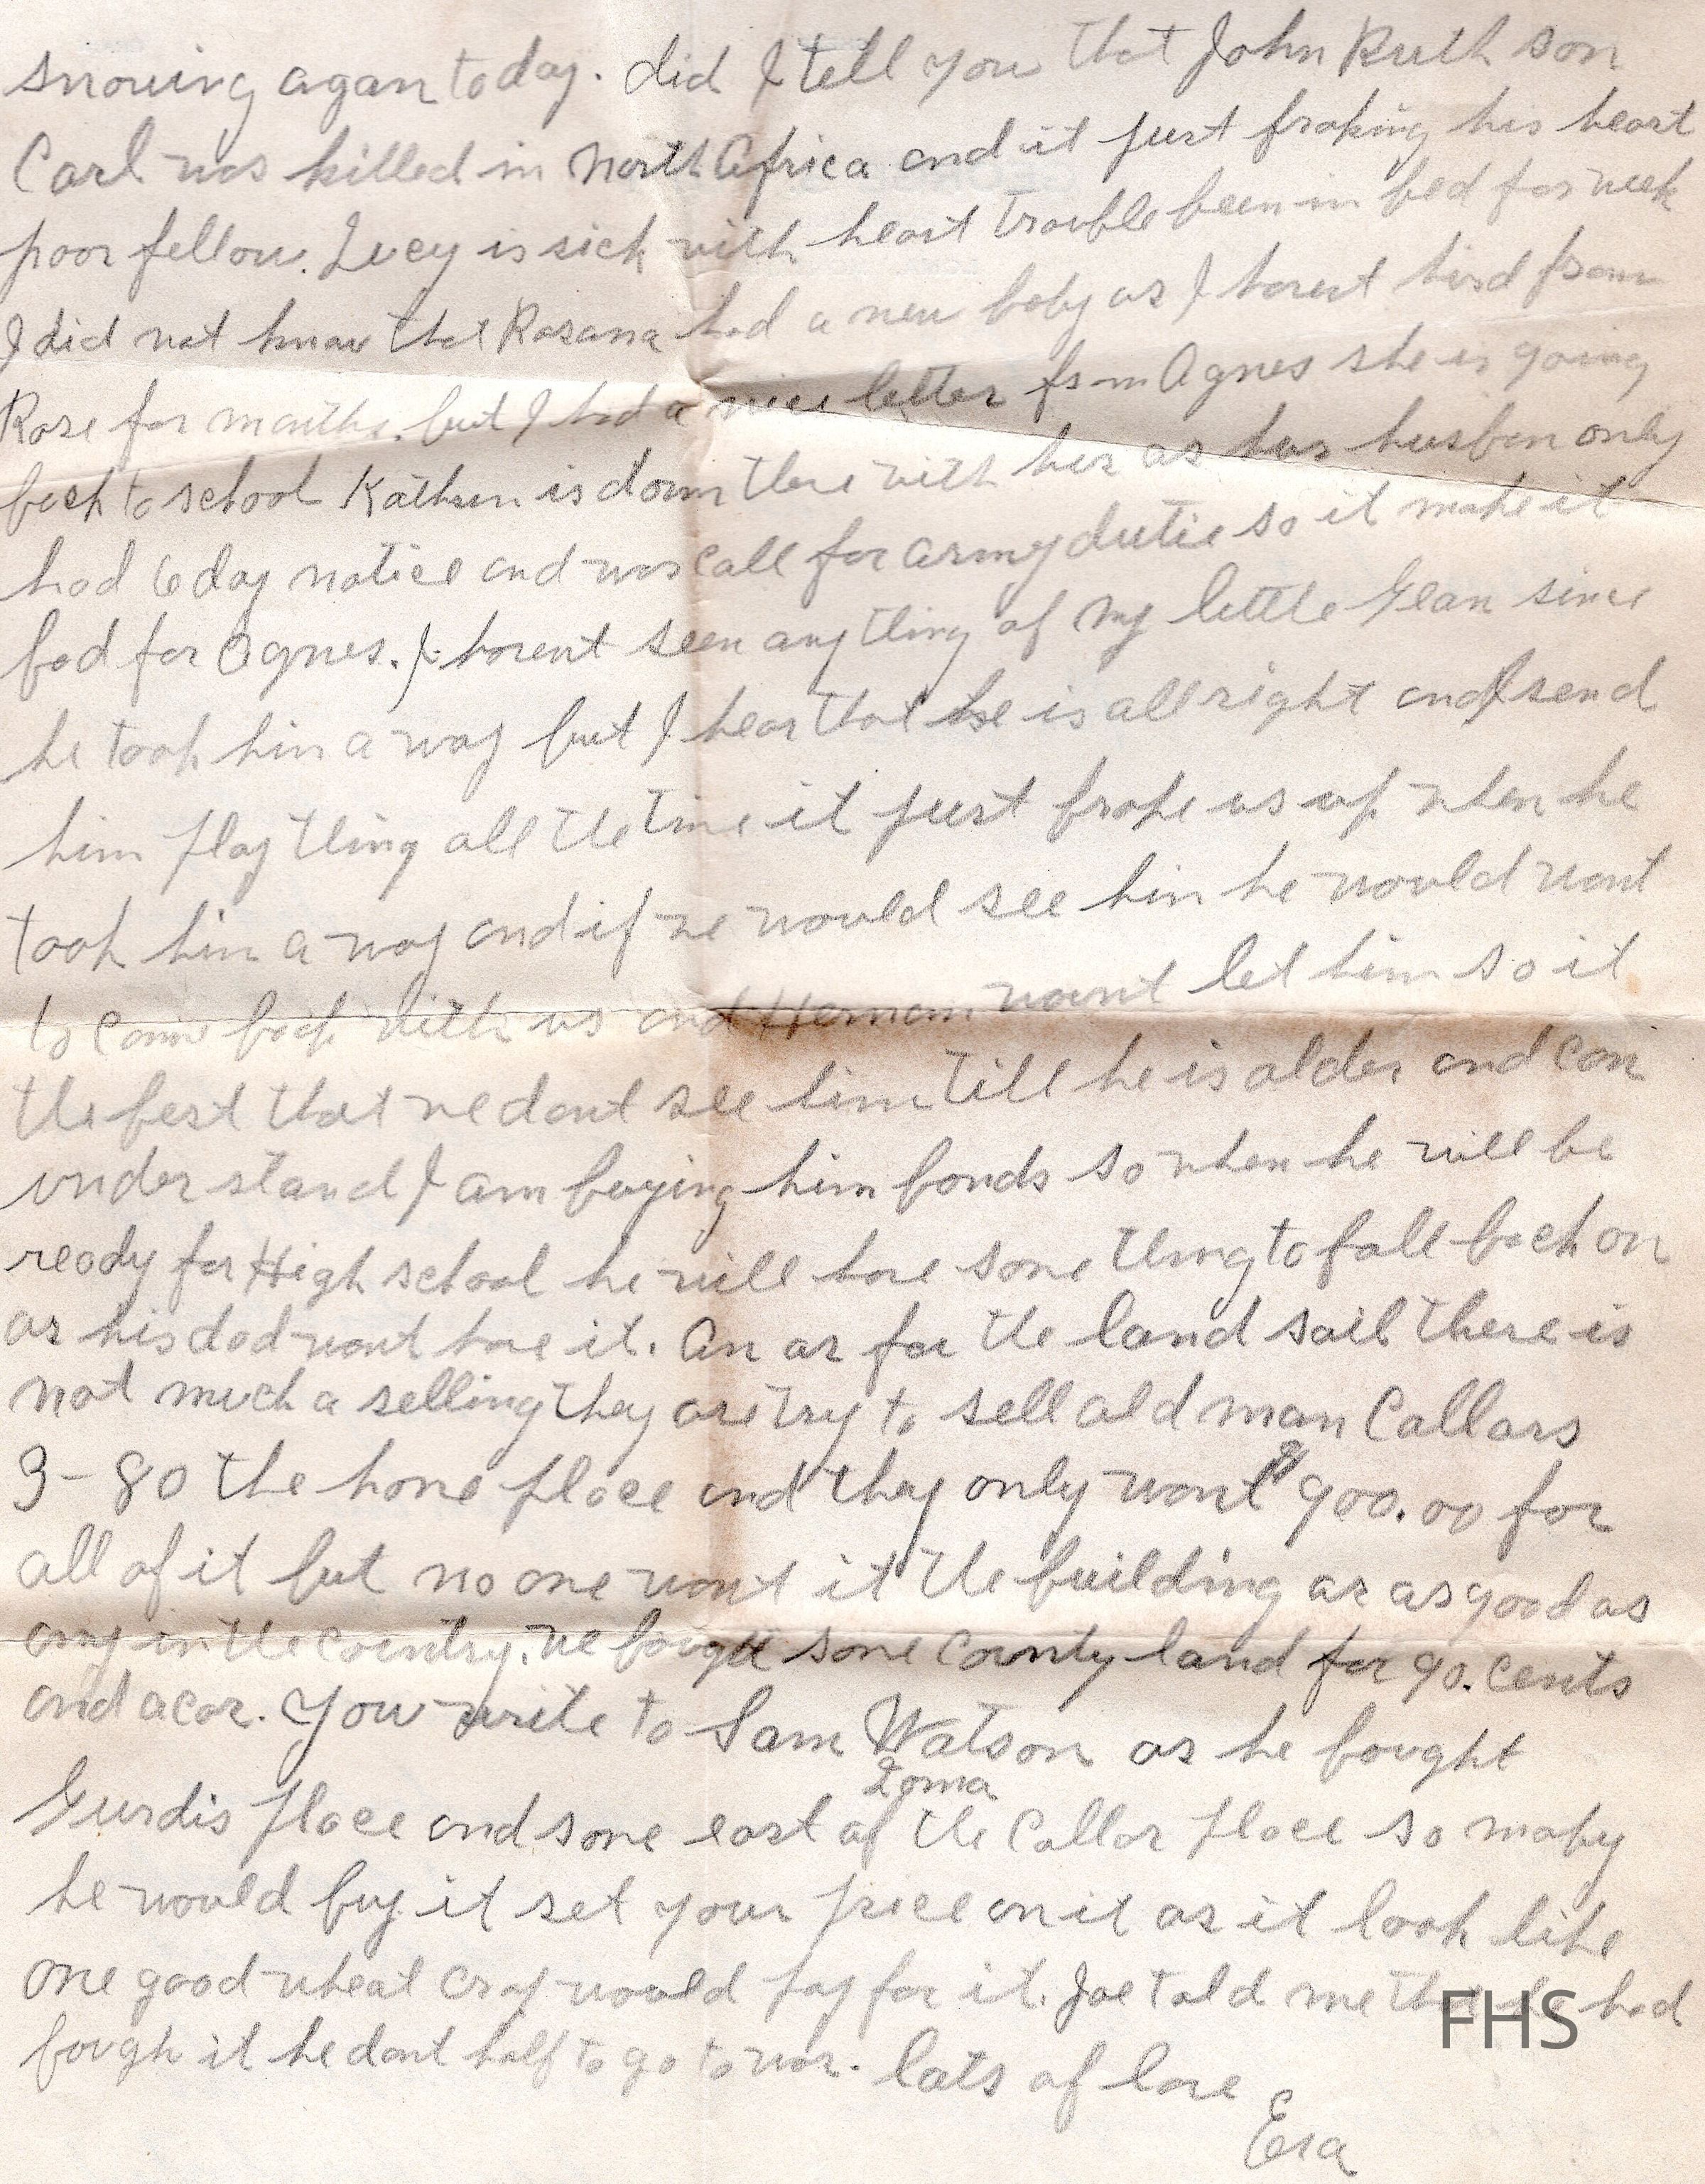 snowing agan today. did I tell you that John Ruth son
Carl was killed in North Africa and it just braking his heart
poor fellow. Lucy is sick with heart trouble been in bed for week
I did not know that Rosana had a new baby as I havent hird from
Rose for months. but I had a nice letter from Agnes she is going
back to school Kathren is down there with her as her husben only
had 6 day notice and was call for army dutie so it make it
bad for Agnes. I havent seen any thing of my little Glean since
he took him a way but I hear that he is all right and I send
him play thing all the time it just broke us up when he
took him a way and if we would see him he would want
to come back with us and Herman wount let him so it
the best that we dont see him till he is older and can
under stand I am buying him bonds so when he will be
ready for High school he will have some thing to fall back on
as his dad wont have it. An as for the land sail there is
not much a selling they are try to sell old man Callars
3-80 the home place and they only want $900.00 for
all of it but no one want it the building ar as good as
any in the country. we bought some County land for 90. cents
and acar. You write to Sam Watson as he bought
Gurdis place and some east of the Zoma Callar place so maby
he would buy it set your price on it as it look like
one good wheat crop would pay for it. Joe told me that he had
bough it he dont half to go to war. lots of love
Era
FHS